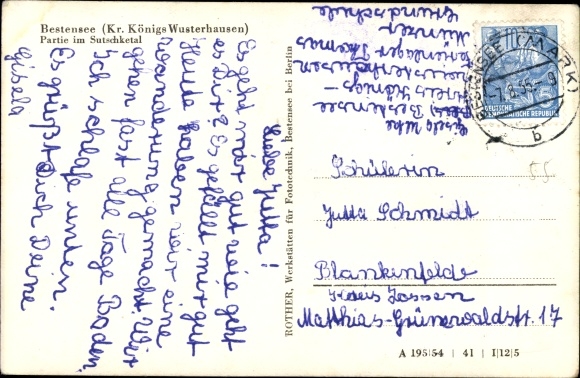 Bestensee (Kr. KönigsWusterhausen)
Partie im Sutschketal
Liebe Jutta!
Es geht mir gut wie geht
es Dir? Es gefällt mir gut
Heute haben wir eine
Wanderung gemacht. Wir
gehen fast alle Tage Baden.
Ich schlafe unten.
Es grüßt Dich Deine
Gisela
ROTHER, Werkstätten für Fototechnik, Bestensee bei Berlin
Gisela
Bestensee
Kreis Königs-
wusterhausen
Thomas
Münzer
Grundschule
10
DEUTSCHE
DEMOKRATISCHE REPUBLIK
BESTENSEE (MARK)
b
Schülerin
Jutta Schmidt
Blankenfelde
Kreis Zossen
Matthias-Grünewaldstr. 17
55
A 195|54 | 41 | I|12|5